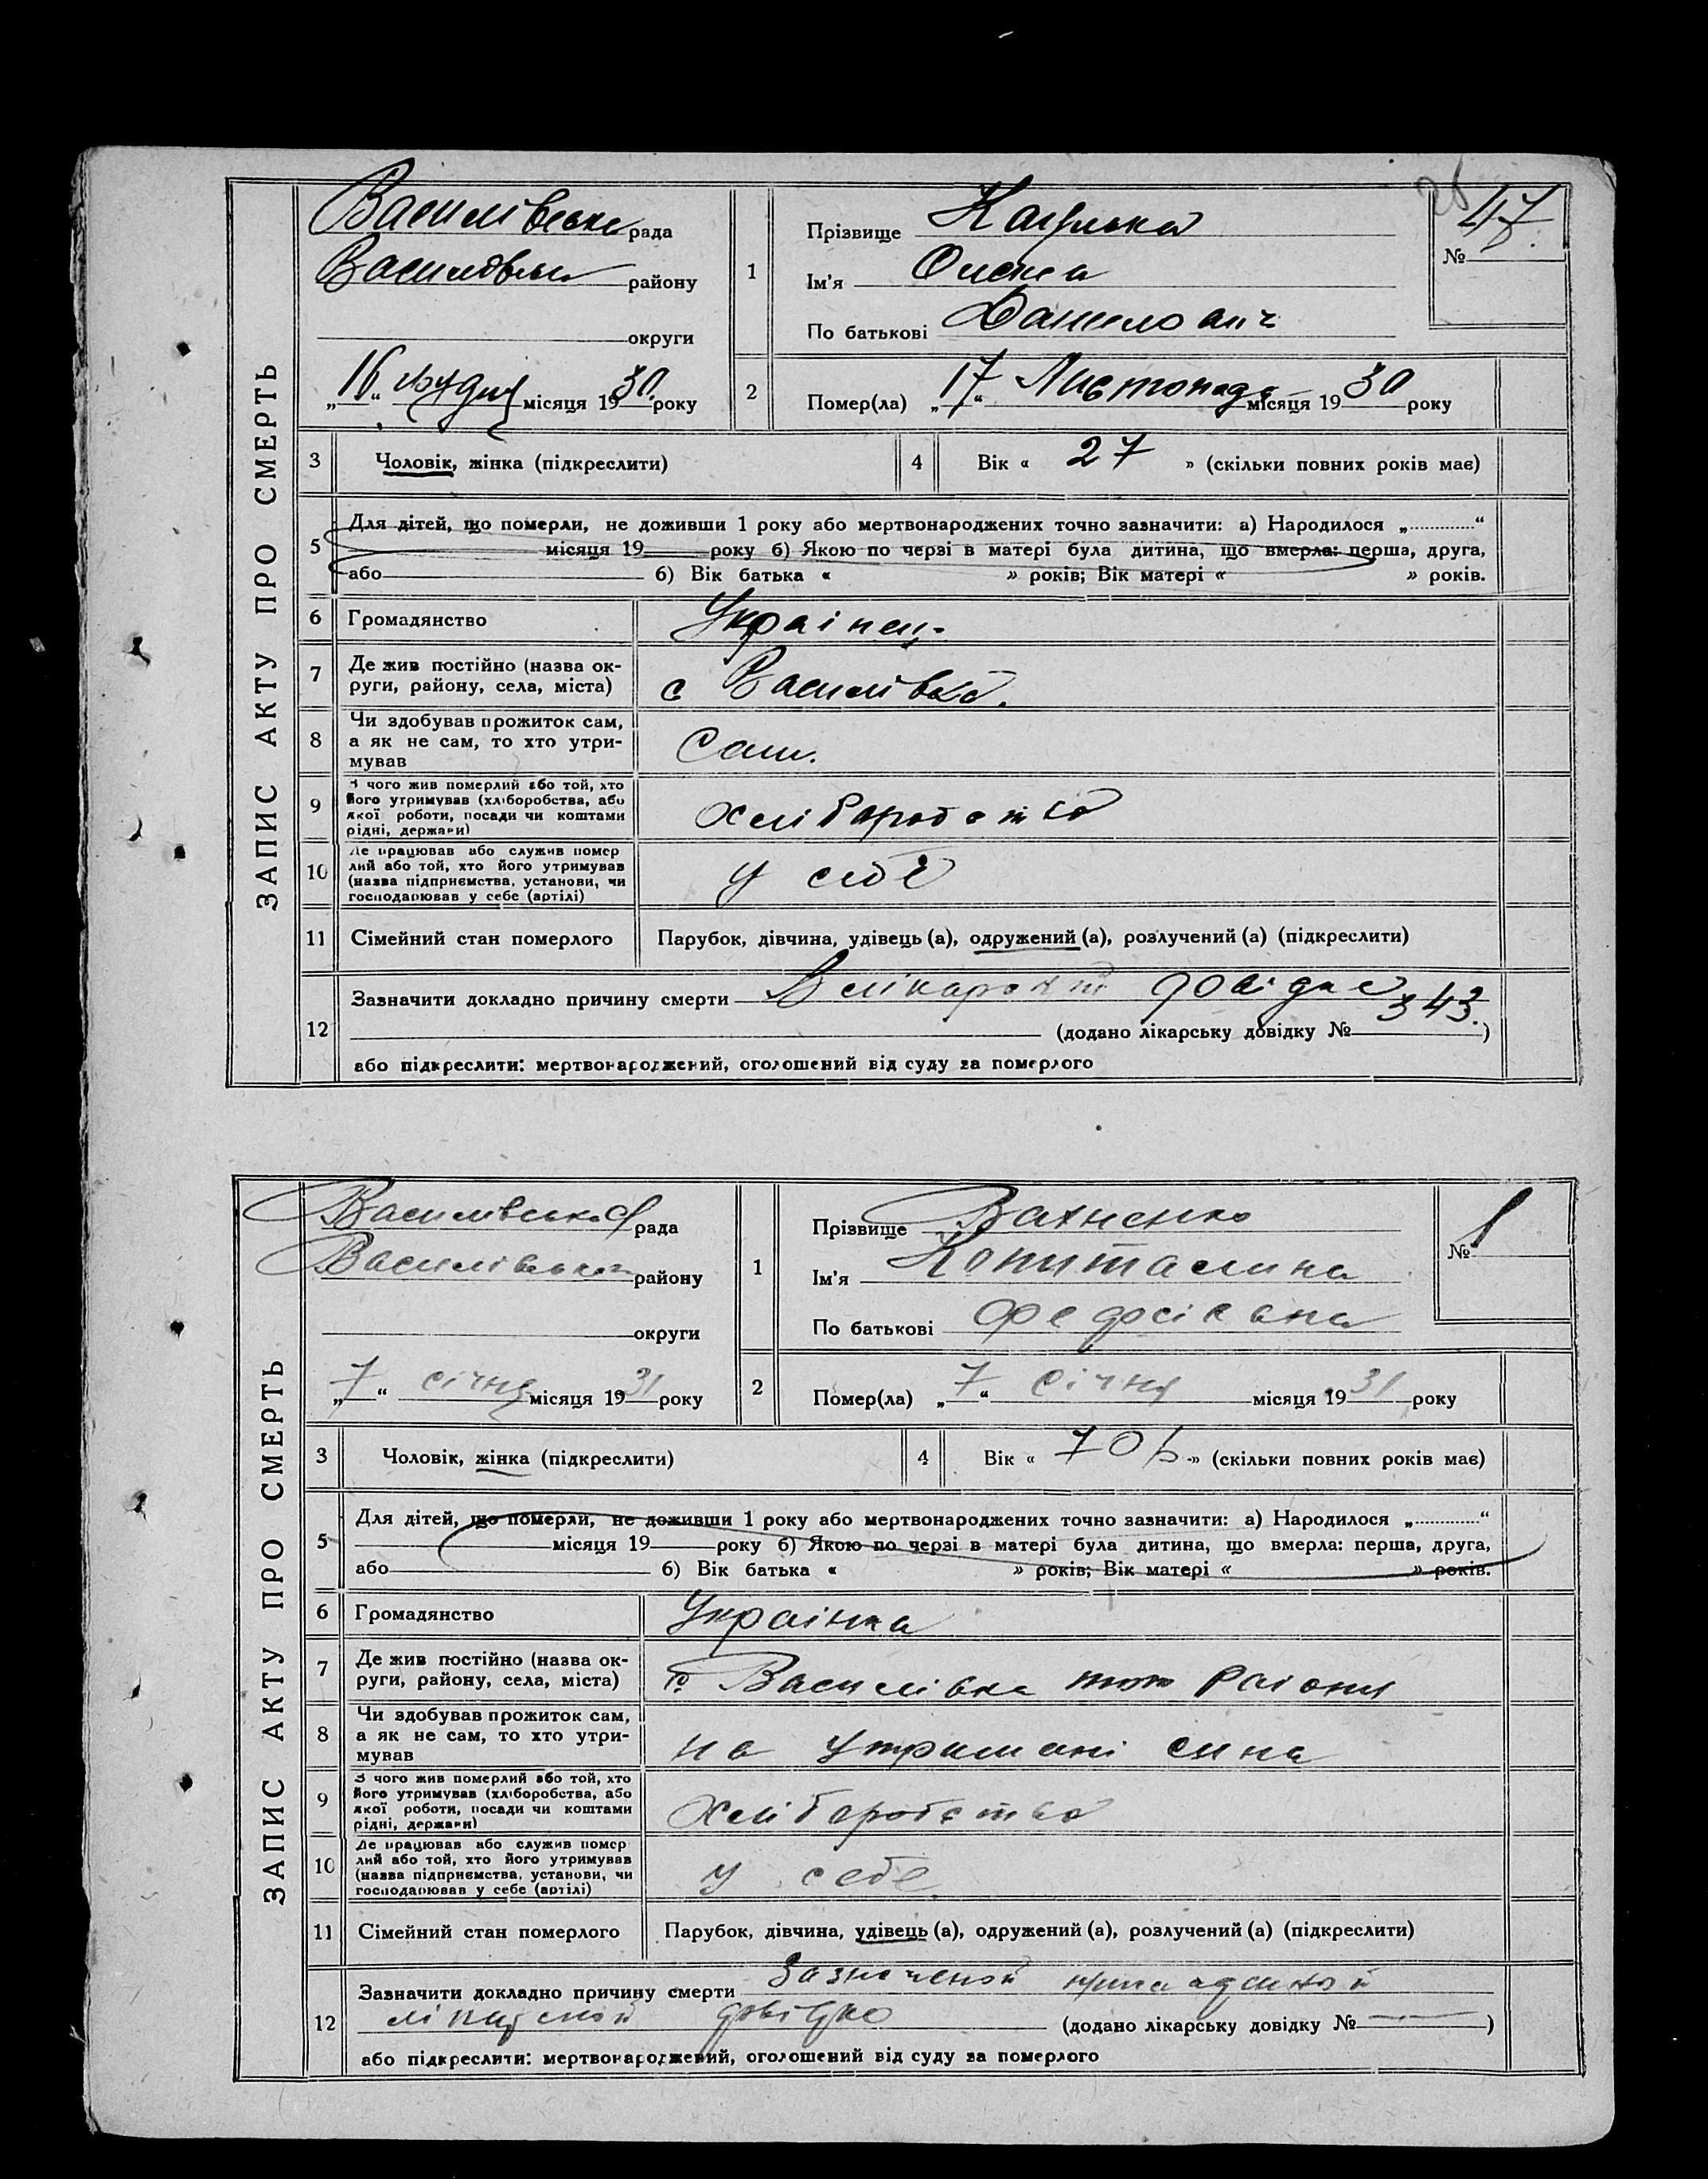 28
ЗАПИС АКТУ ПРО СМЕРТЬ
Василівська рада
району
округи
„16“ грудня місяця 1930. року
1
Прізвище
Ім'я
По батькові Данилович
№ 47.
2
Помер(ла) „17“ Листопада місяця 1930 року
3 Чоловік, жінка (підкреслити)
4 Вік « 27 » (скільки повних років має)
5 Для дітей, що померли, не доживши 1 року або мертвонароджених точно зазначити: а) Народилося „............“
місяця 19 року б) Якою по черзі в матері була дитина, що вмерла: перша, друга,
або б) Вік батька « » років; Вік матері « » років.
6 Громадянство Українец.
7 Де жив постійно (назва ок-
руги, району, села, міста) с Василівка.
8 Чи здобував прожиток сам,
а як не сам, то хто утри-
мував Сам.
9 З чого жив померлий або той, хто
його утримував (хліборобства, або
якої роботи, посади чи коштами
рідні, держави) хліборобство
10 Де працював або служив помер
лий або той, хто його утримував
(назва підприємства, установи, чи
господарював у себе (артілі) у себе
11 Сімейний стан померлого Парубок, дівчина, удівець (а), одружений (а), розлучений (а) (підкреслити)
12 Зазначити докладно причину смерти В
(додано лікарську довідку № 343.)
або підкреслити: мертвонароджений, оголошений від суду за померлого
ЗАПИС АКТУ ПРО СМЕРТЬ
Василівська рада
району
округи
„7“ січня місяця 1931 року
1
Прізвище Вахненко
Ім'я
По батькові
№ 1
2
Помер(ла) „7“ січня місяця 1931 року
3 Чоловік, жінка (підкреслити)
4 Вік « 70 » (скільки повних років має)
5 Для дітей, що померли, не доживши 1 року або мертвонароджених точно зазначити: а) Народилося „............“
місяця 19 року б) Якою по черзі в матері була дитина, що вмерла: перша, друга,
або б) Вік батька « » років; Вік матері « » років.
6 Громадянство Українка
7 Де жив постійно (назва ок-
руги, району, села, міста) с. Василівка того району
8 Чи здобував прожиток сам,
а як не сам, то хто утри-
мував на утримані сина
9 З чого жив померлий або той, хто
його утримував (хліборобства, або
якої роботи, посади чи коштами
рідні, держави) хліборобство
10 Де працював або служив помер
лий або той, хто його утримував
(назва підприємства, установи, чи
господарював у себе (артілі) у себе
11 Сімейний стан померлого Парубок, дівчина, удівець (а), одружений (а), розлучений (а) (підкреслити)
12 Зазначити докладно причину смерти
(додано лікарську довідку № —)
або підкреслити: мертвонароджений, оголошений від суду за померлого